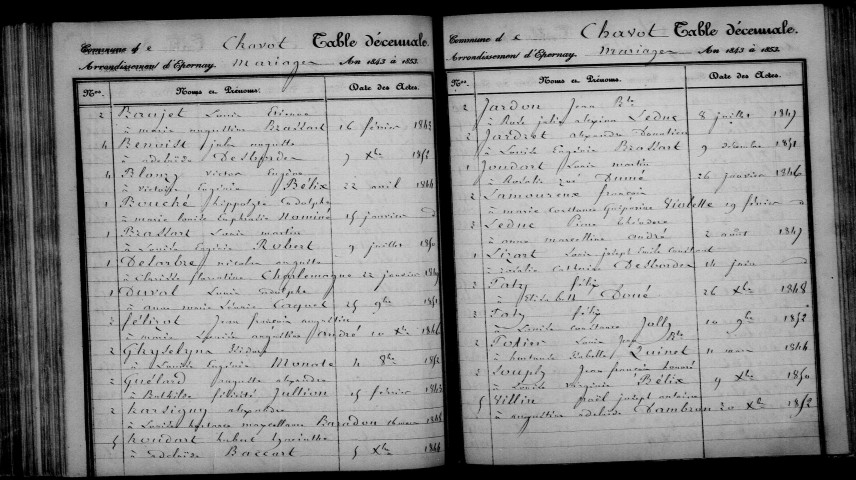 Commune d e Chavot Table décennale.
Arrondissement d'Epernay. Mariages An 1843 à 1853.
Nos. Noms et Prénoms. Date des Actes.
2 Baujet Louis Etienne
à marie augustine Brassart 16 février 1843
4 Benoist jules auguste
à adelaïde Desborde 9 Xbre 1852
4 Blonzy victor Eugène
à victoire Eugénie Bélix 22 avril 1844
1 Bouché hippolyte adolphe
à marie louise Euphrasie Nominé 15 janvier d
1 Brassart Louis martin
à Louise Eugénie Robert 9 juillet 1850
1 Delarbre nicolas auguste
à Clarisse florentine Charlemagne 22 janvier 1849
1 Duval Louis adolphe
à anne marie Léonie Caquet 25 9bre 1851
2 félizot Jean françois augustin
à marie Louise augustine andré 10 Xbre 1846
2 Ghyselynx Isidore
à Louise Eugénie 4 8bre 1852
2 Guélard auguste alexandre
à Bathilde félicité Jullion 15 février 1843
2 Karsigny alexandre
à Louise hortance marcelline Baradon mars 1848
5 hubert hyacinthe
à adelaïde Baccart 5 Xbre 1846
Commune d e Chavot Table décennale.
Arrondissement d'Epernay. Mariages An 1843 à 1853.
Nos. Noms et Prénoms. Date des Actes.
2 Jardon Jean Bte
à Rose julie alexina Leduc 8 juillet 1847
2 Jardret alexandre Donatien
à Louise Eugénie Brassart 9 décembre 1851
1 Jondart Louis martin
à Rosalie zoé Dumé 26 janvier 1846
2 Lamoureux françois
à marie Constance Gasparine Violette 19 février d
2 Leduc Pierre théodore
à anne marcelline andré 2 août 1847
1 Lizart Louis joseph Emile
à rosalie catherine Desbordes 14 juin d
2 Paty félix
à Elisabeth Doué 26 Xbre 1848
2 Paty félix
à Louise constance Jully 10 9bre 1852
2 Louis Jean Bte
à Isabelle Quinet 11 mars 1844
2 Souply Jean françois honoré
à Louise virginie Bélix 9 Xbre 1850
5 Villin noël joseph antoine
à augustine adelaïde Dambron 20 Xbre 1852